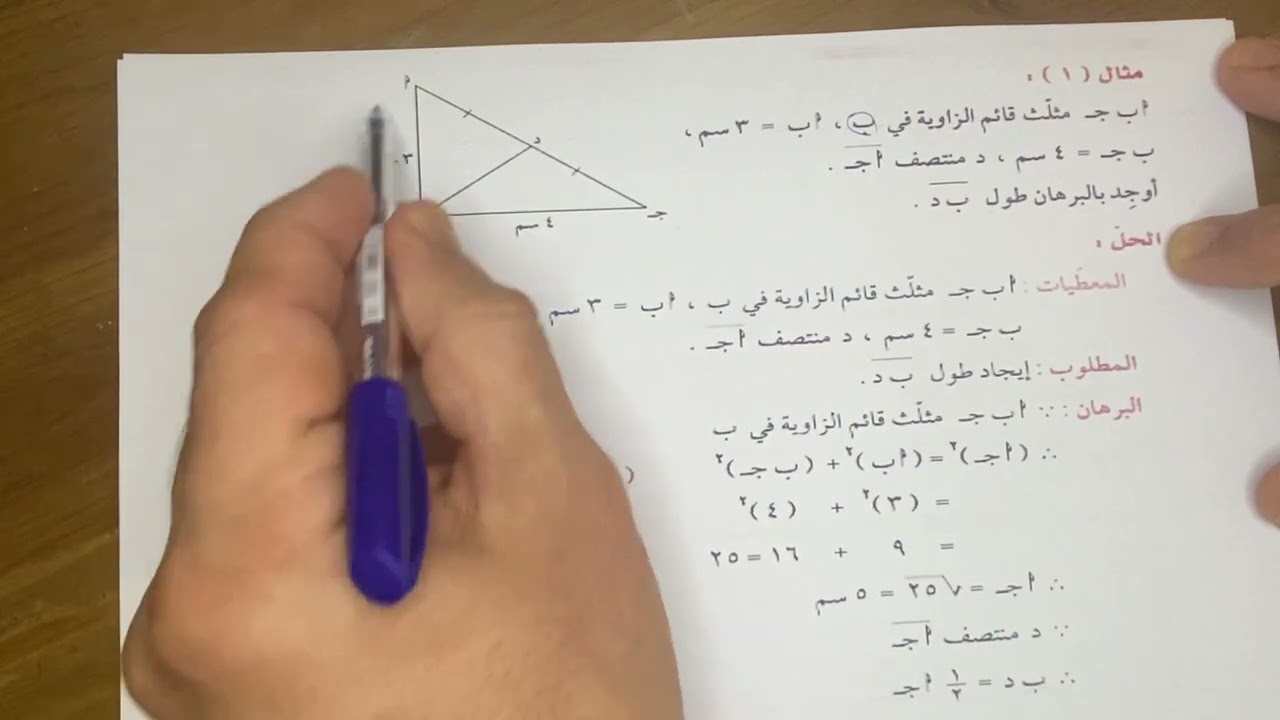 مثال ( ١ ) :
أ ب جـ مثلّث قائم الزاوية في ب ، أ ب = ٣ سم ،
ب جـ = ٤ سم ، د منتصف أ جـ .
أوجِد بالبرهان طول ب د .
أ
د
٣
جـ
٤ سم
الحلّ :
المعطَيات : أ ب جـ مثلّث قائم الزاوية في ب ، أ ب = ٣ سم
ب جـ = ٤ سم ، د منتصف أ جـ .
المطلوب : إيجاد طول ب د .
البرهان : ∵ أ ب جـ مثلّث قائم الزاوية في ب
∴ ( أ جـ )٢ = ( أ ب )٢ + ( ب جـ )٢
= ( ٣ )٢ + ( ٤ )٢
= ٩ + ١٦ = ٢٥
∴ أ جـ = √٢٥ = ٥ سم
∵ د منتصف أ جـ
∴ ب د = ١/٢ أ جـ